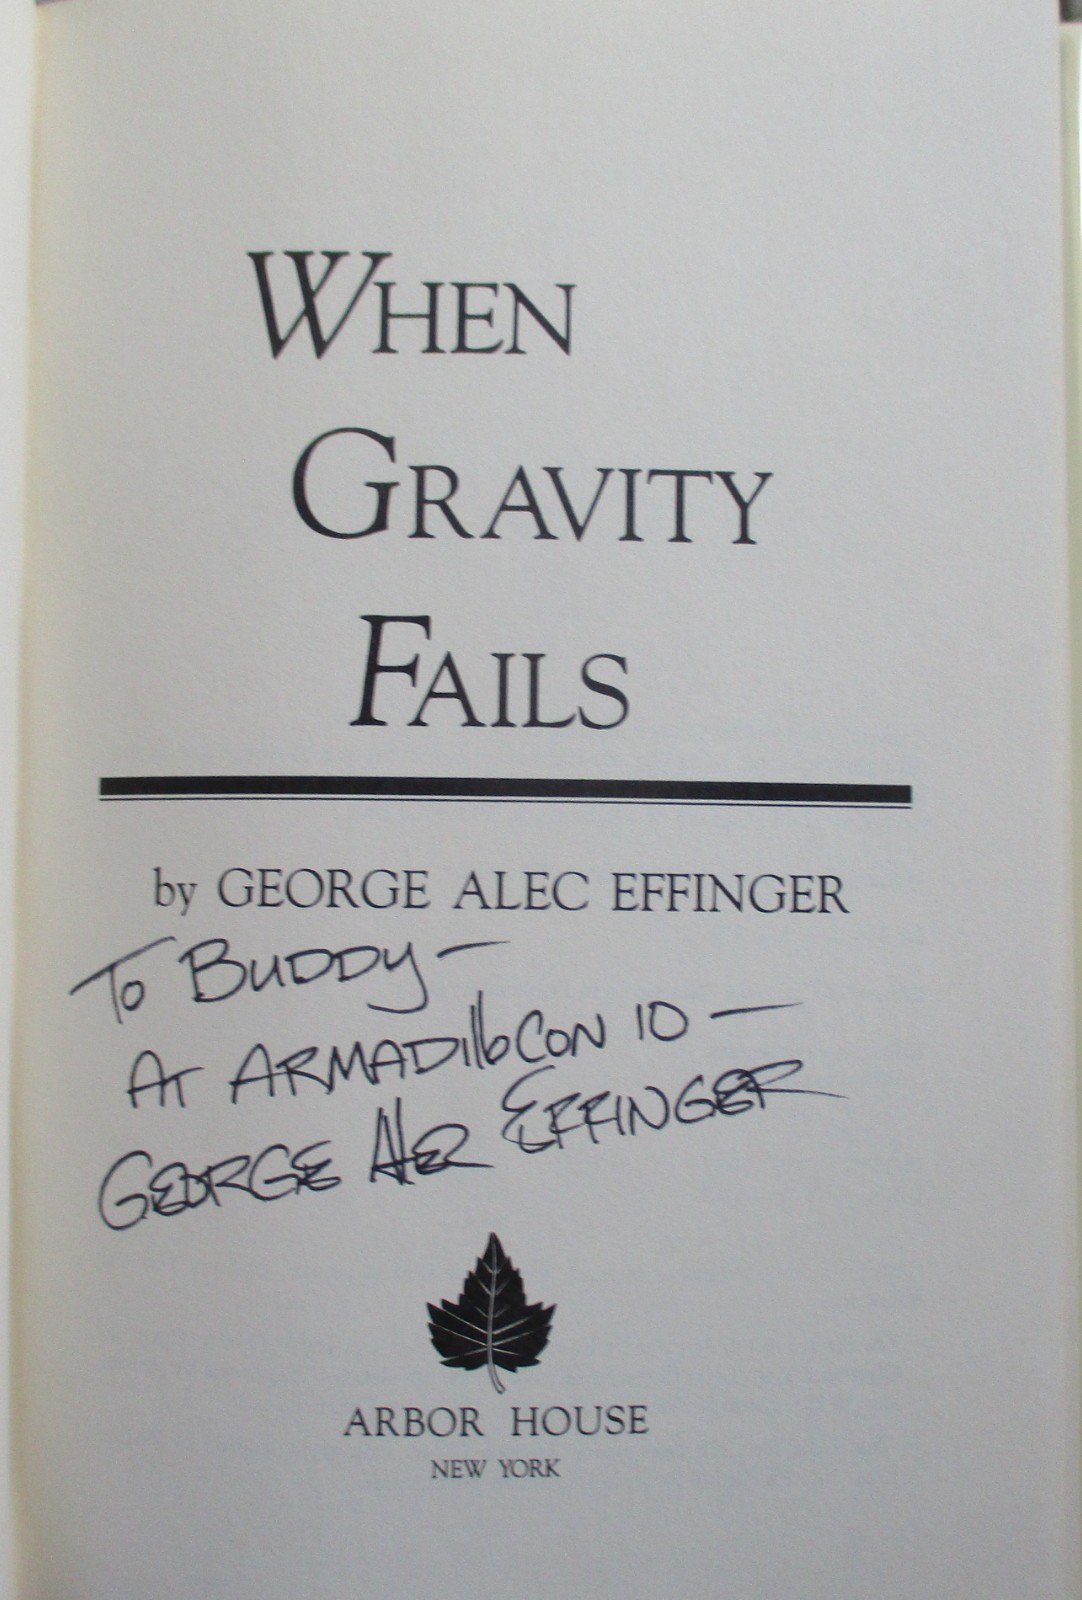 WHEN
GRAVITY
FAILS
by GEORGE ALEC EFFINGER
To BUDDY—
AT ARMADilloCON 10—
GEORGE Alec EFFINGER
ARBOR HOUSE
NEW YORK